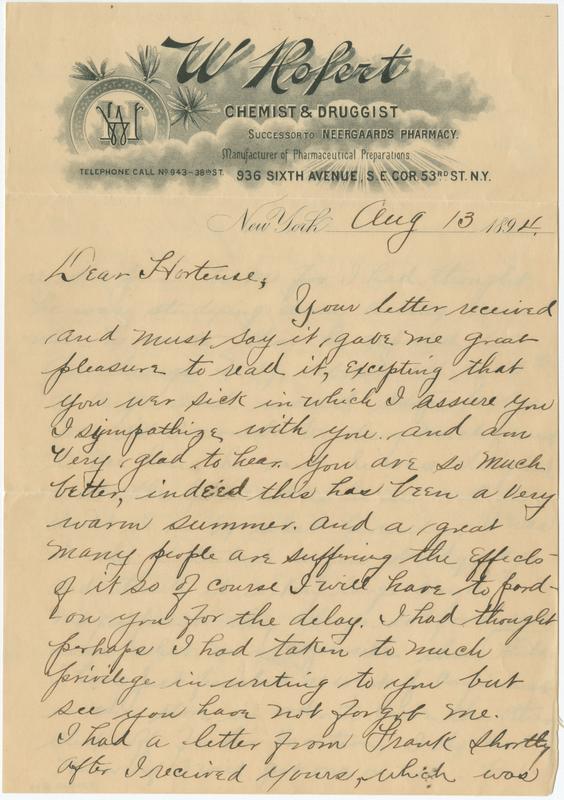 W Hofert
CHEMIST & DRUGGIST
SUCCESSOR TO NEERGAARDS PHARMACY.
Manufacturer of Pharmaceutical Preparations.
TELEPHONE CALL No 943-38TH ST. 936 SIXTH AVENUE, S.E. COR. 53RD ST. N.Y.
New York Aug 13 1894.
Dear Hortense,
Your letter received
and must say it gave me great
pleasure to read it, excepting that
you wer sick in which I assure you
I sympathize with you. and am
Very glad to hear you are so much
better, indeed this has been a very
warm summer. and a great
many people are suffering the effects
of it so of course I will have to pard-
-on you for the delay. I had thought
perhaps I had taken to much
privilege in writing to you but
see you have not forgot me.
I had a letter from Frank shortly
after I received yours, which was